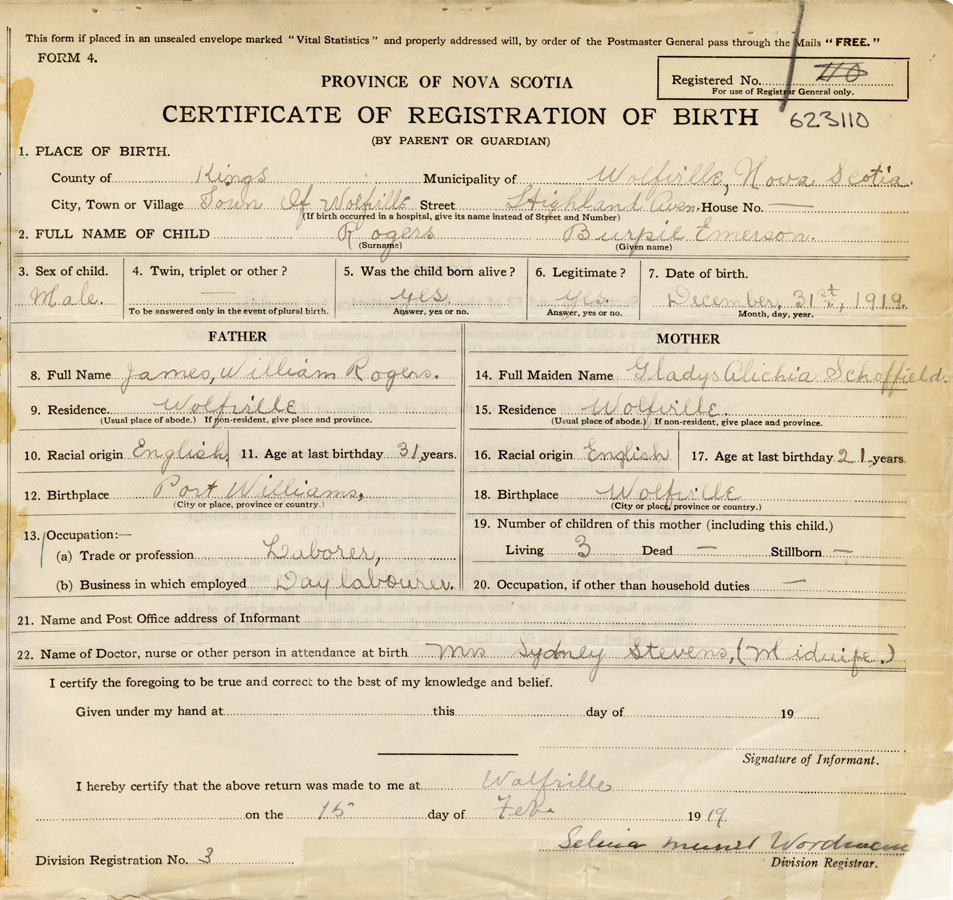 This form if placed in an unsealed envelope marked "Vital Statistics" and properly addressed will, by order of the Postmaster General pass through the Mails "FREE."
FORM 4.
PROVINCE OF NOVA SCOTIA
Registered No. 110
For use of Registrar General only.
CERTIFICATE OF REGISTRATION OF BIRTH
623110
(BY PARENT OR GUARDIAN)
1. PLACE OF BIRTH.
County of Kings Municipality of Wolfville, Nova Scotia.
City, Town or Village Town Of Wolfville Street Highland Aven. House No. —
(If birth occurred in a hospital, give its name instead of Street and Number)
2. FULL NAME OF CHILD Rogers Burpie Emerson.
(Surname) (Given name)
3. Sex of child. 4. Twin, triplet or other? 5. Was the child born alive? 6. Legitimate? 7. Date of birth.
Male. — yes. yes. December, 31st, 1919.
To be answered only in the event of plural birth. Answer, yes or no. Answer, yes or no. Month, day, year.
FATHER MOTHER
8. Full Name James, William Rogers. 14. Full Maiden Name Gladys Alichia Schoffield.
9. Residence. Wolfville 15. Residence Wolfville.
(Usual place of abode.) If non-resident, give place and province. (Usual place of abode.) If non-resident, give place and province.
10. Racial origin English 11. Age at last birthday 31, years. 16. Racial origin English 17. Age at last birthday 21 years.
12. Birthplace Port Williams, 18. Birthplace Wolfville
(City or place, province or country.) (City or place, province or country.)
13. Occupation:— 19. Number of children of this mother (including this child.)
(a) Trade or profession Laborer, Living 3 Dead — Stillborn —
(b) Business in which employed Day labourer. 20. Occupation, if other than household duties —
21. Name and Post Office address of Informant
22. Name of Doctor, nurse or other person in attendance at birth Mrs Sydney Stevens, (Midwife.)
I certify the foregoing to be true and correct to the best of my knowledge and belief.
Given under my hand at this day of 19
Signature of Informant.
I hereby certify that the above return was made to me at Wolfville
on the 15 day of Feb. 1919.
Division Registration No. 3
Division Registrar.